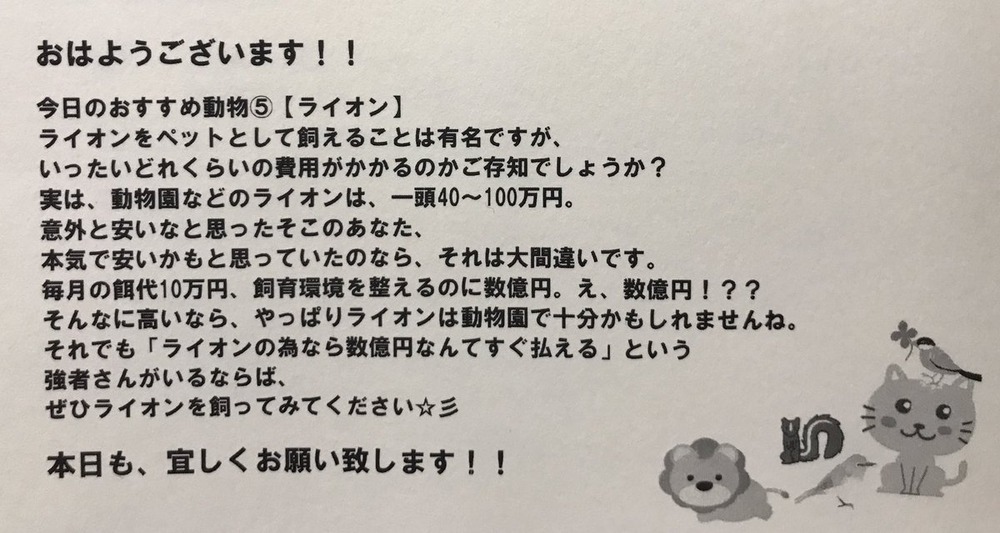 おはようございます！！
今日のおすすめ動物⑤【ライオン】
ライオンをペットとして飼えることは有名ですが、
いったいどれくらいの費用がかかるのかご存知でしょうか？
実は、動物園などのライオンは、一頭40～100万円。
意外と安いなと思ったそこのあなた、
本気で安いかもと思っていたのなら、それは大間違いです。
毎月の餌代10万円、飼育環境を整えるのに数億円。え、数億円！？？
そんなに高いなら、やっぱりライオンは動物園で十分かもしれませんね。
それでも「ライオンの為なら数億円なんてすぐ払える」という
強者さんがいるならば、
ぜひライオンを飼ってみてください☆彡
本日も、宜しくお願い致します！！